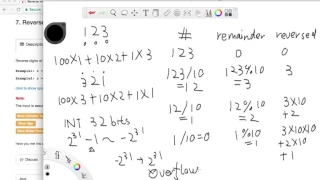 7. Reverse
Descri
Reverse digits of
Example1: x
Example2: x
click to show spoi
Note:
The input is assum
Have you met this
123
100X1+10X2+1X3
321
100X3+10X2+1X1
INT 32 bits
2^31-1 ~ -2^31
-2^31 + 2^31
Overflow
# remainder reversed
123 0 0
123/10 =12 123%10 =3 3
12/10 =1 12%10 =2 3X10 +2
1/10=0 1%10 =1 3X10X10 +2X10 +1